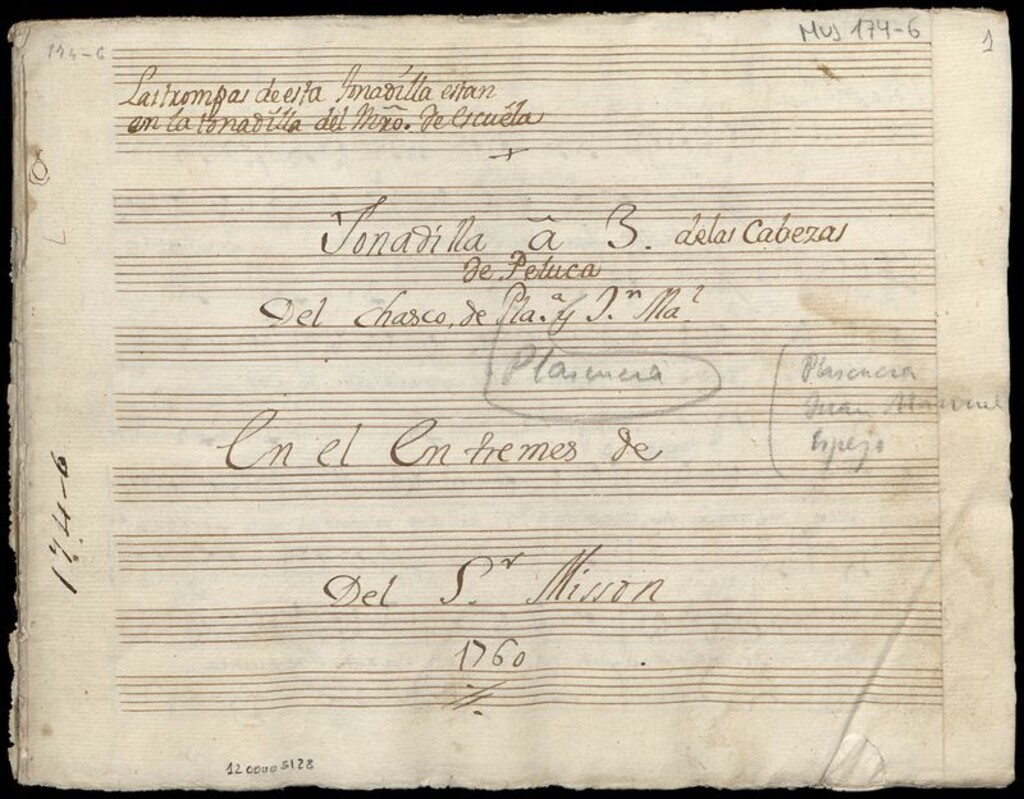 174-6
Mus 174-6
1
Las trompas de esta tonadilla estan
en la tonadilla del Mro. de Escuela
Tonadilla â 3. delas Cabezas
de Peluca
Del Chasco, de Pla.ª y J.n Ma.l
Plasencia
Plasencia
Juan Manuel
Espejo
En el Entremes de
174-6
Del S.r Misson
1760
1200005128